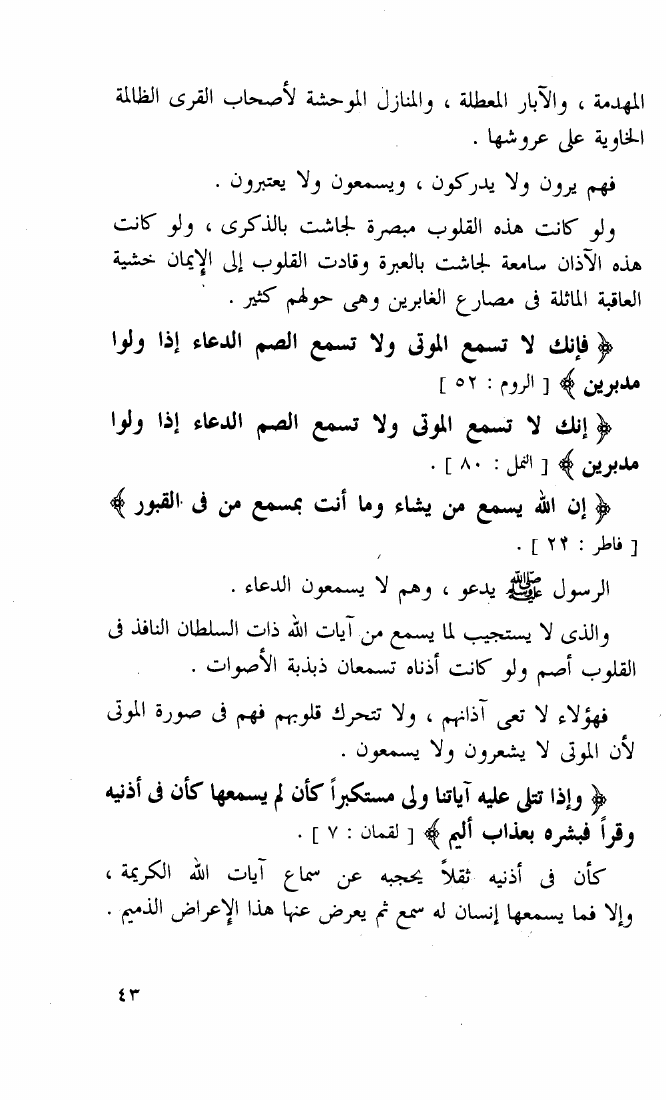 المهدمة ، والآبار المعطلة ، والمنازل الموحشة لأصحاب القرى الظالمة
الخاوية على عروشها .
فهم يرون ولا يدركون ، ويسمعون ولا يعتبرون .
ولو كانت هذه القلوب مبصرة لجاشت بالذكرى ، ولو كانت
هذه الآذان سامعة لجاشت بالعبرة وقادت القلوب إلى الإيمان خشية
العاقبة الماثلة فى مصارع الغابرين وهى حولهم كثير .
﴿ فإنك لا تسمع الموتى ولا تسمع الصم الدعاء إذا ولوا
مدبرين ﴾ [ الروم : ٥٢ ]
﴿ إنك لا تسمع الموتى ولا تسمع الصم الدعاء إذا ولوا
مدبرين ﴾ [ النمل : ٨٠ ] .
﴿ إن الله يسمع من يشاء وما أنت بمسمع من فى القبور ﴾
[ فاطر : ٢٢ ] .
الرسول ﷺ يدعو ، وهم لا يسمعون الدعاء .
والذى لا يستجيب لما يسمع من آيات الله ذات السلطان النافذ فى
القلوب أصم ولو كانت أذناه تسمعان ذبذبة الأصوات .
فهؤلاء لا تعى آذانهم ، ولا تتحرك قلوبهم فهم فى صورة الموتى
لأن الموتى لا يشعرون ولا يسمعون .
﴿ وإذا تتلى عليه آياتنا ولى مستكبراً كأن لم يسمعها كأن فى أذنيه
وقراً فبشره بعذاب أليم ﴾ [ لقمان : ٧ ] .
كأن فى أذنيه ثقلاً يحجبه عن سماع آيات الله الكريمة ،
وإلا فما يسمعها إنسان له سمع ثم يعرض عنها هذا الإعراض الذميم .
٤٣